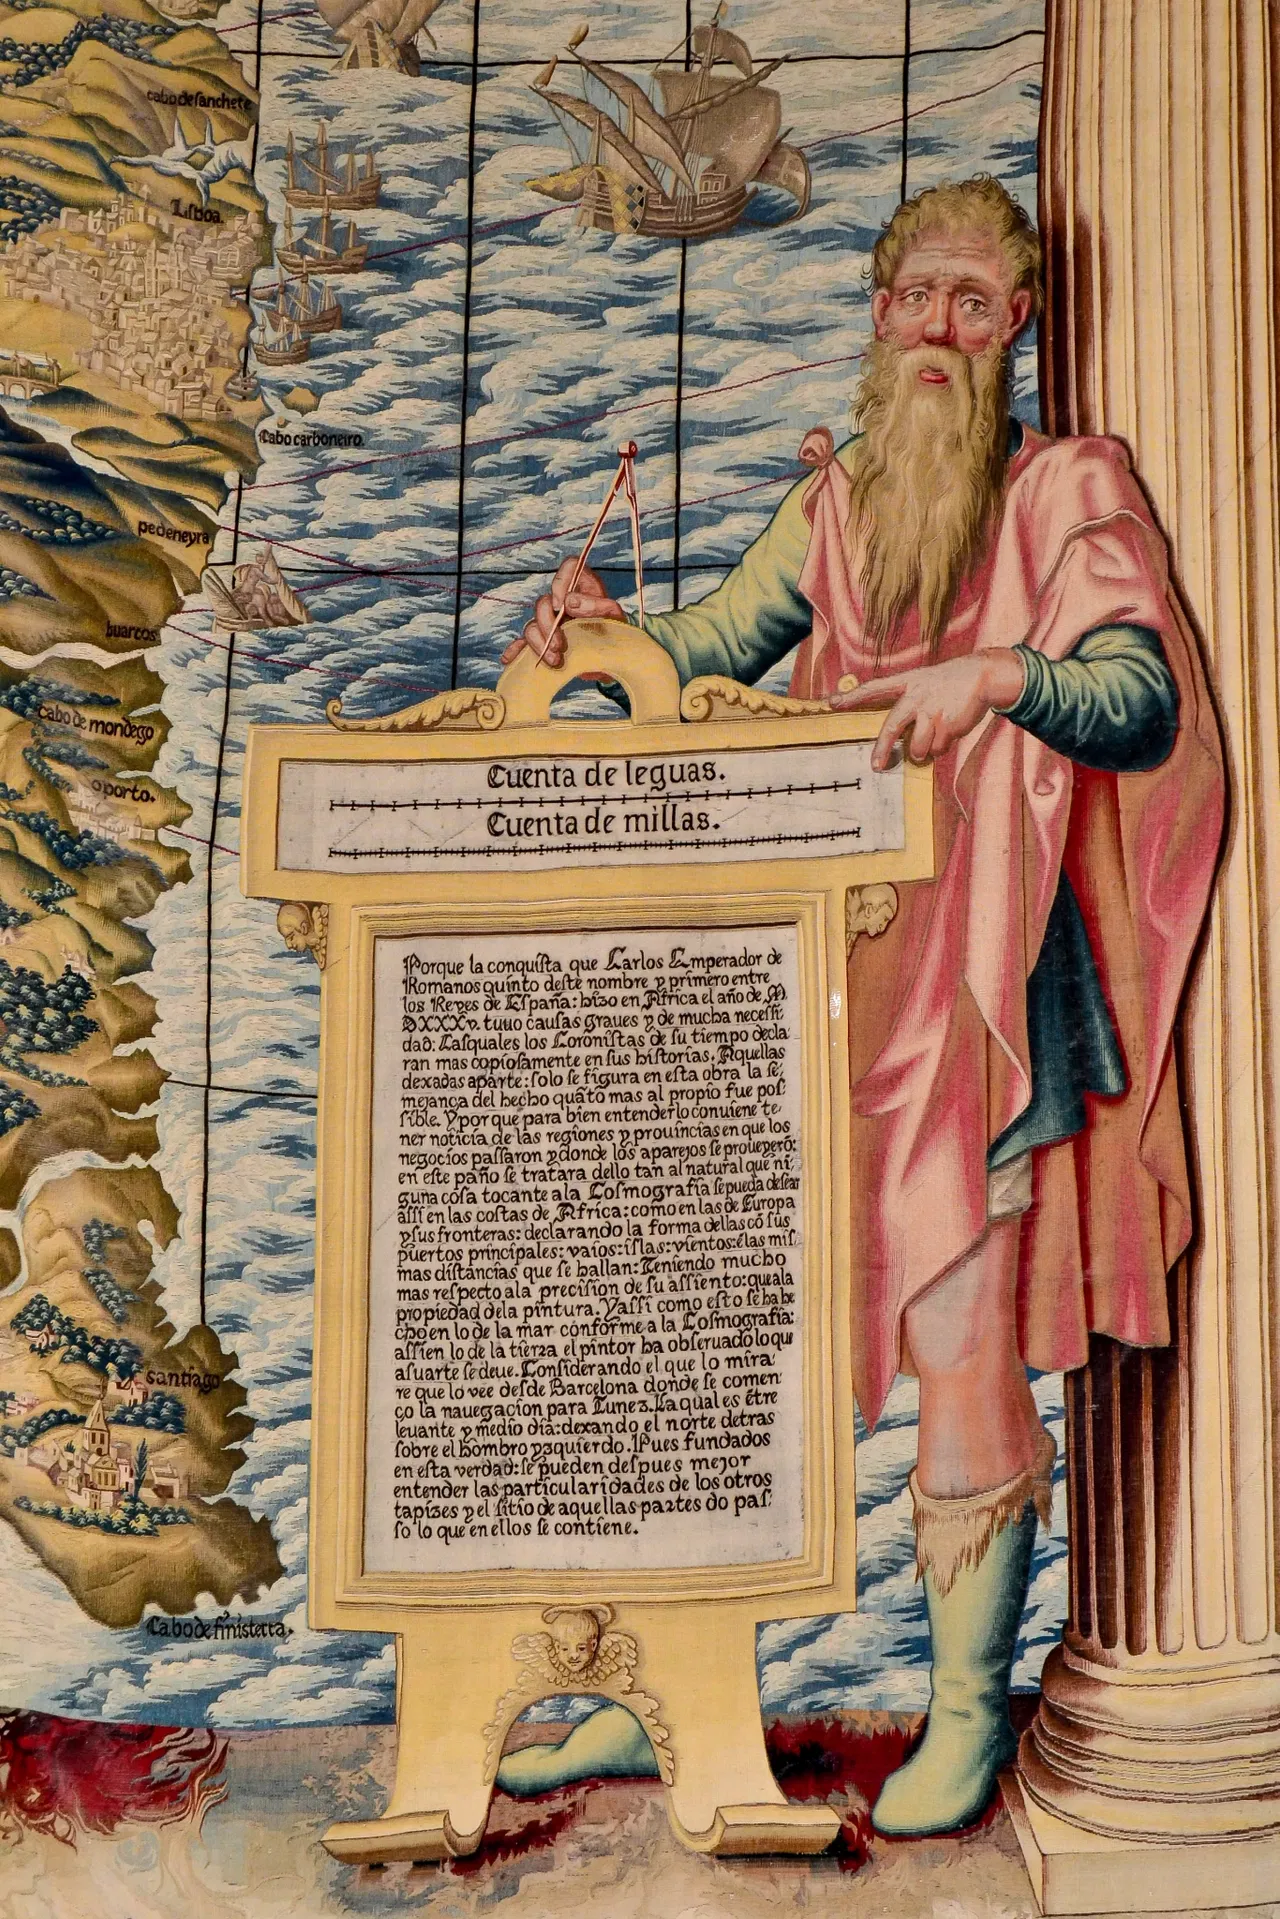 cabo de sanchete
Lisboa.
Cabo carboneiro.
pedeneyra
buarcos
cabo de mondego
oporto.
santiago
Cabo de finisterra.
Cuenta de leguas.
Cuenta de millas.
Porque la conquista que Carlos Emperador de
Romanos quinto deste nombre y primero entre
los Reyes de España: hizo en Africa el año de M
DXXXv. tuuo causas graues y de mucha necessi
dad: Lasquales los Coronistas de su tiempo decla
ran mas copiosamente en sus historias. Aquellas
dexadas aparte: solo se figura en esta obra la se,
mejança del hecho quãto mas al propio fue pos:
sible. Y por que para bien entenderlo conuiene te,
ner noticia de las regiones y prouincias en que los
negocios passaron y donde los aparejos se proueyerõ:
en este paño se tratara dello tan al natural que ni,
guna cosa tocante a la Cosmografia se pueda desear
assi en las costas de Africa: como en las de Europa
y sus fronteras: declarando la forma dellas cõ sus
puertos principales: vaios: islas: vientos: ẽ las mis,
mas distancias que se hallan: Teniendo mucho
mas respecto ala precision de su assiento: que ala
propiedad dela pintura. Y assi como esto se ha he
cho en lo de la mar conforme a la Cosmografia:
assi en lo de la tierra el pintor ha obseruado lo que
a su arte se deue. Considerando el que lo mira,
re que lo vee desde Barcelona donde se comen,
ço la nauegacion para Tunez. La qual es ẽtre
leuante y medio dia: dexando el norte detras
sobre el hombro yzquierdo. Pues fundados
en esta verdad: se pueden despues mejor
entender las particularidades de los otros
tapizes y el sitio de aquellas partes do pas:
so lo que en ellos se contiene.